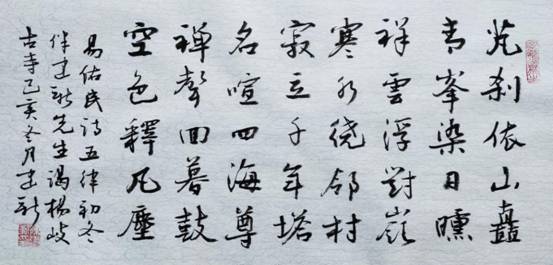 梵刹依山矗
青峯染日曛
祥雲浮對嶺
寒水繞鄰村
寂立千年塔
名喧四海尊
禪聲回暮鼓
空色釋凡塵
易佑民诗五律初冬
伴建新先生謁楊岐
古寺己亥冬月建新